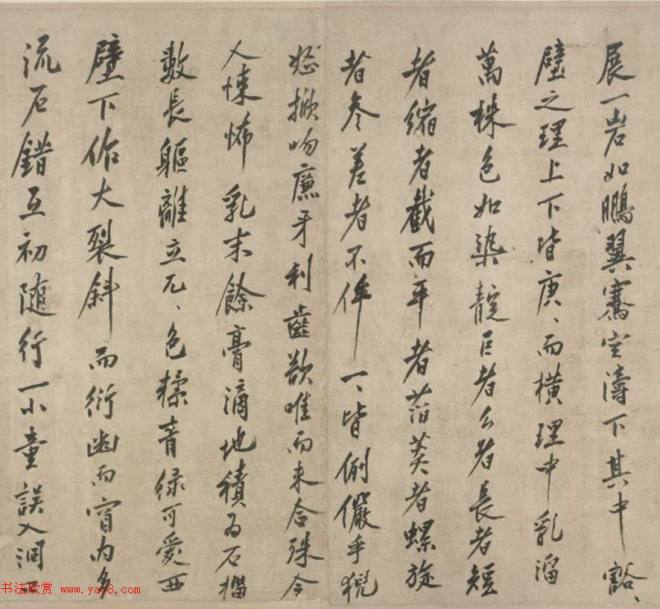 展一岩如鵬翼騫空濤下其中豁、
壁之理上下皆庚、而橫理中乳溜
萬株色如染靛巨者么者長者短
者縮者截而平者者螺旋
者參差者不侔一、皆倒儼乎猊
怒掀吻廉牙利齒欲唯而未合殊令
人悚怖乳末餘膏滴地積爲石
數長軀離立兀、色糅青綠可愛西
壁下作大裂斜而衍幽而窅內多
流石錯互初隨行一小童誤入洞西
书法欣赏 www.yac8.com